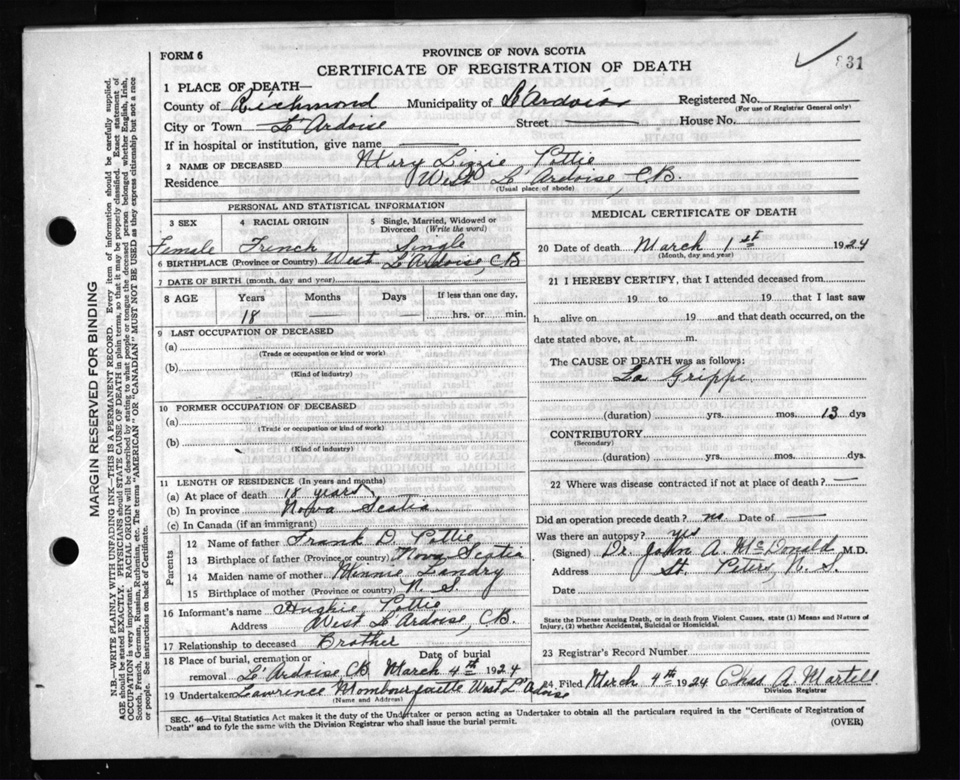 FORM 6
PROVINCE OF NOVA SCOTIA
831
CERTIFICATE OF REGISTRATION OF DEATH
1 PLACE OF DEATH—
County of Richmond Municipality of L'Ardoise Registered No.
(For use of Registrar General only)
City or Town L'Ardoise Street House No.
If in hospital or institution, give name
2 NAME OF DECEASED Mary Lizzie Pottie
Residence West L'Ardoise, C.B.
(Usual place of abode)
PERSONAL AND STATISTICAL INFORMATION
3 SEX 4 RACIAL ORIGIN 5 Single, Married, Widowed or Divorced (Write the word)
Female French Single
6 BIRTHPLACE (Province or Country) West L'Ardoise, CB
7 DATE OF BIRTH (month, day and year)
8 AGE Years Months Days If less than one day,
18 — — hrs. or min.
9 LAST OCCUPATION OF DECEASED
(a)
(Trade or occupation or kind or work)
(b)
(Kind of industry)
10 FORMER OCCUPATION OF DECEASED
(a)
(Trade or occupation or kind of work)
(b)
(Kind of industry)
11 LENGTH OF RESIDENCE (In years and months)
(a) At place of death 18 years
(b) In province Nova Scotia
(c) In Canada (if an immigrant)
Parents
12 Name of father Frank D. Pottie
13 Birthplace of father (Province or country) Nova Scotia
14 Maiden name of mother Minnie Landry
15 Birthplace of mother (Province or country) N. S.
16 Informant's name Hughie Pottie
Address West L'Ardoise, C.B.
17 Relationship to deceased Brother
18 Place of burial, cremation or removal L'Ardoise CB Date of burial March 4th 1924
19 Undertaker Lawrence Mombourquette West L'Ardoise
(Name and Address)
MEDICAL CERTIFICATE OF DEATH
20 Date of death March 1st 1924
(Month, day and year)
21 I HEREBY CERTIFY, that I attended deceased from
19 to 19 that I last saw
h alive on 19 and that death occurred, on the
date stated above, at m.
The CAUSE OF DEATH was as follows:
La Grippe
(duration) yrs. mos. 13 dys
CONTRIBUTORY
(Secondary)
(duration) yrs. mos. dys.
22 Where was disease contracted if not at place of death? —
Did an operation precede death? no Date of —
Was there an autopsy? yes
(Signed) Dr. John A. McDonald M.D.
Address St. Peters, N. S.
Date
State the Disease causing Death, or in death from Violent Causes, state (1) Means and Nature of
Injury, (2) whether Accidental, Suicidal or Homicidal.
23 Registrar's Record Number
24 Filed March 4th 1924 Chas A. Martell
Division Registrar
SEC. 46—Vital Statistics Act makes it the duty of the Undertaker or person acting as Undertaker to obtain all the particulars required in the "Certificate of Registration of
Death" and to fyle the same with the Division Registrar who shall issue the burial permit.
(OVER)
MARGIN RESERVED FOR BINDING
N.B.—WRITE PLAINLY WITH UNFADING INK—THIS IS A PERMANENT RECORD. Every item of information should be carefully supplied.
AGE should be stated EXACTLY. PHYSICIANS should STATE CAUSE OF DEATH in plain terms, so that it may be properly classified. Exact statement of
OCCUPATION is very important. RACIAL ORIGIN will be described by stating to what people or tongue the deceased person belonged, whether English, Irish,
Scotch, French, German, Russian, Ruthenian, etc. The terms "AMERICAN" OR "CANADIAN" MUST NOT BE USED as they express citizenship but not a race
or people. See instructions on back of Certificate.